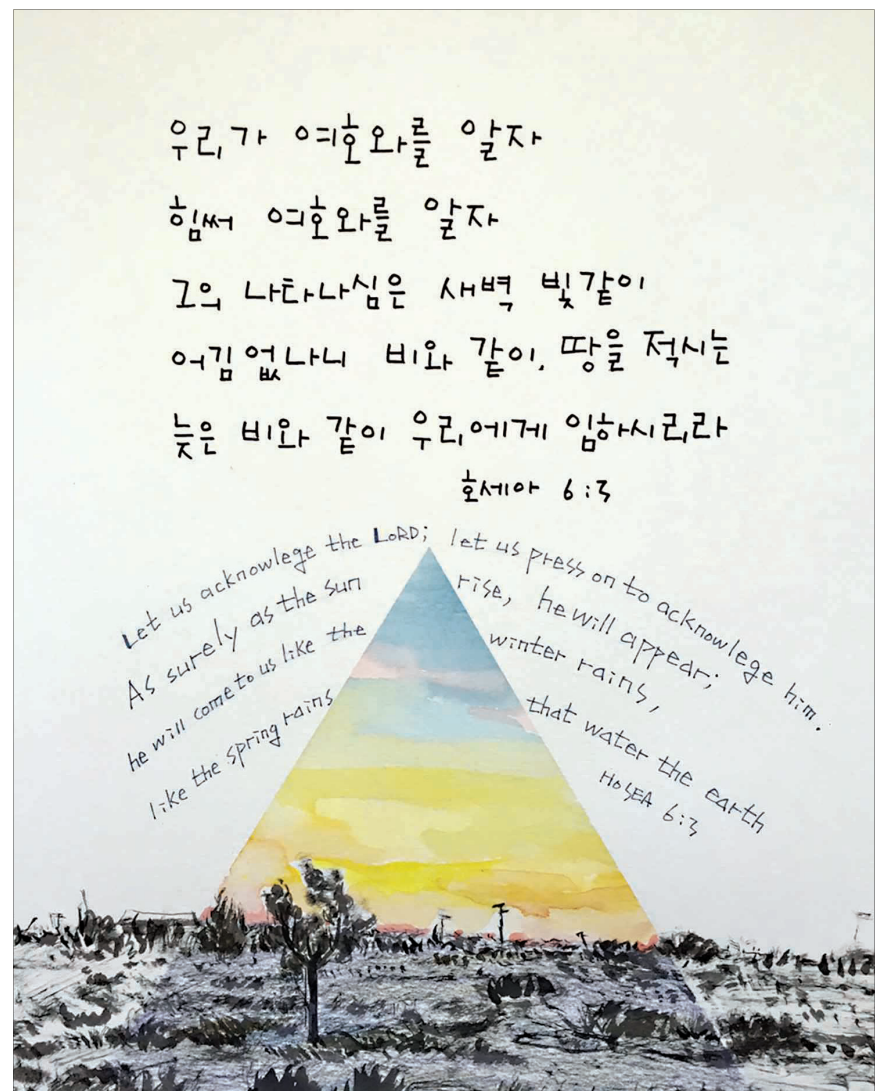 우리가 여호와를 알자
힘써 여호와를 알자
그의 나타나심은 새벽 빛같이
어김없나니 비와 같이, 땅을 적시는
늦은 비와 같이 우리에게 임하시리라
호세아 6:3
Let us acknowlege the LORD; let us press on to acknowlege him.
As surely as the sun rise, he will appear;
he will come to us like the winter rains,
like the spring rains that water the earth
HOSEA 6:3